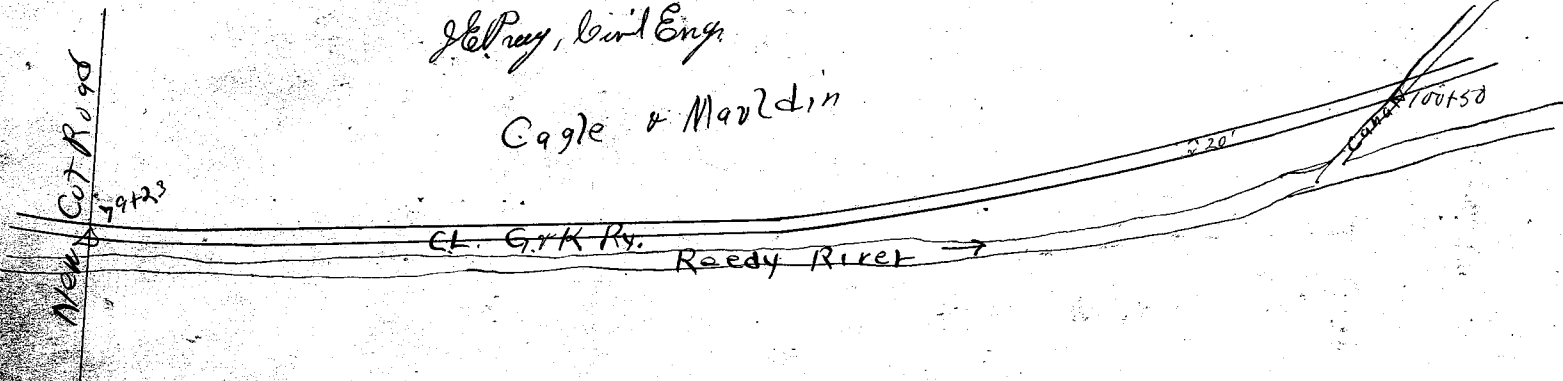 J E Pruy, Civil Engr.
Cagle & Mauldin
New Cut Road
79+23
CL. G. & K Ry.
Reedy River
20'
Canal
100+50